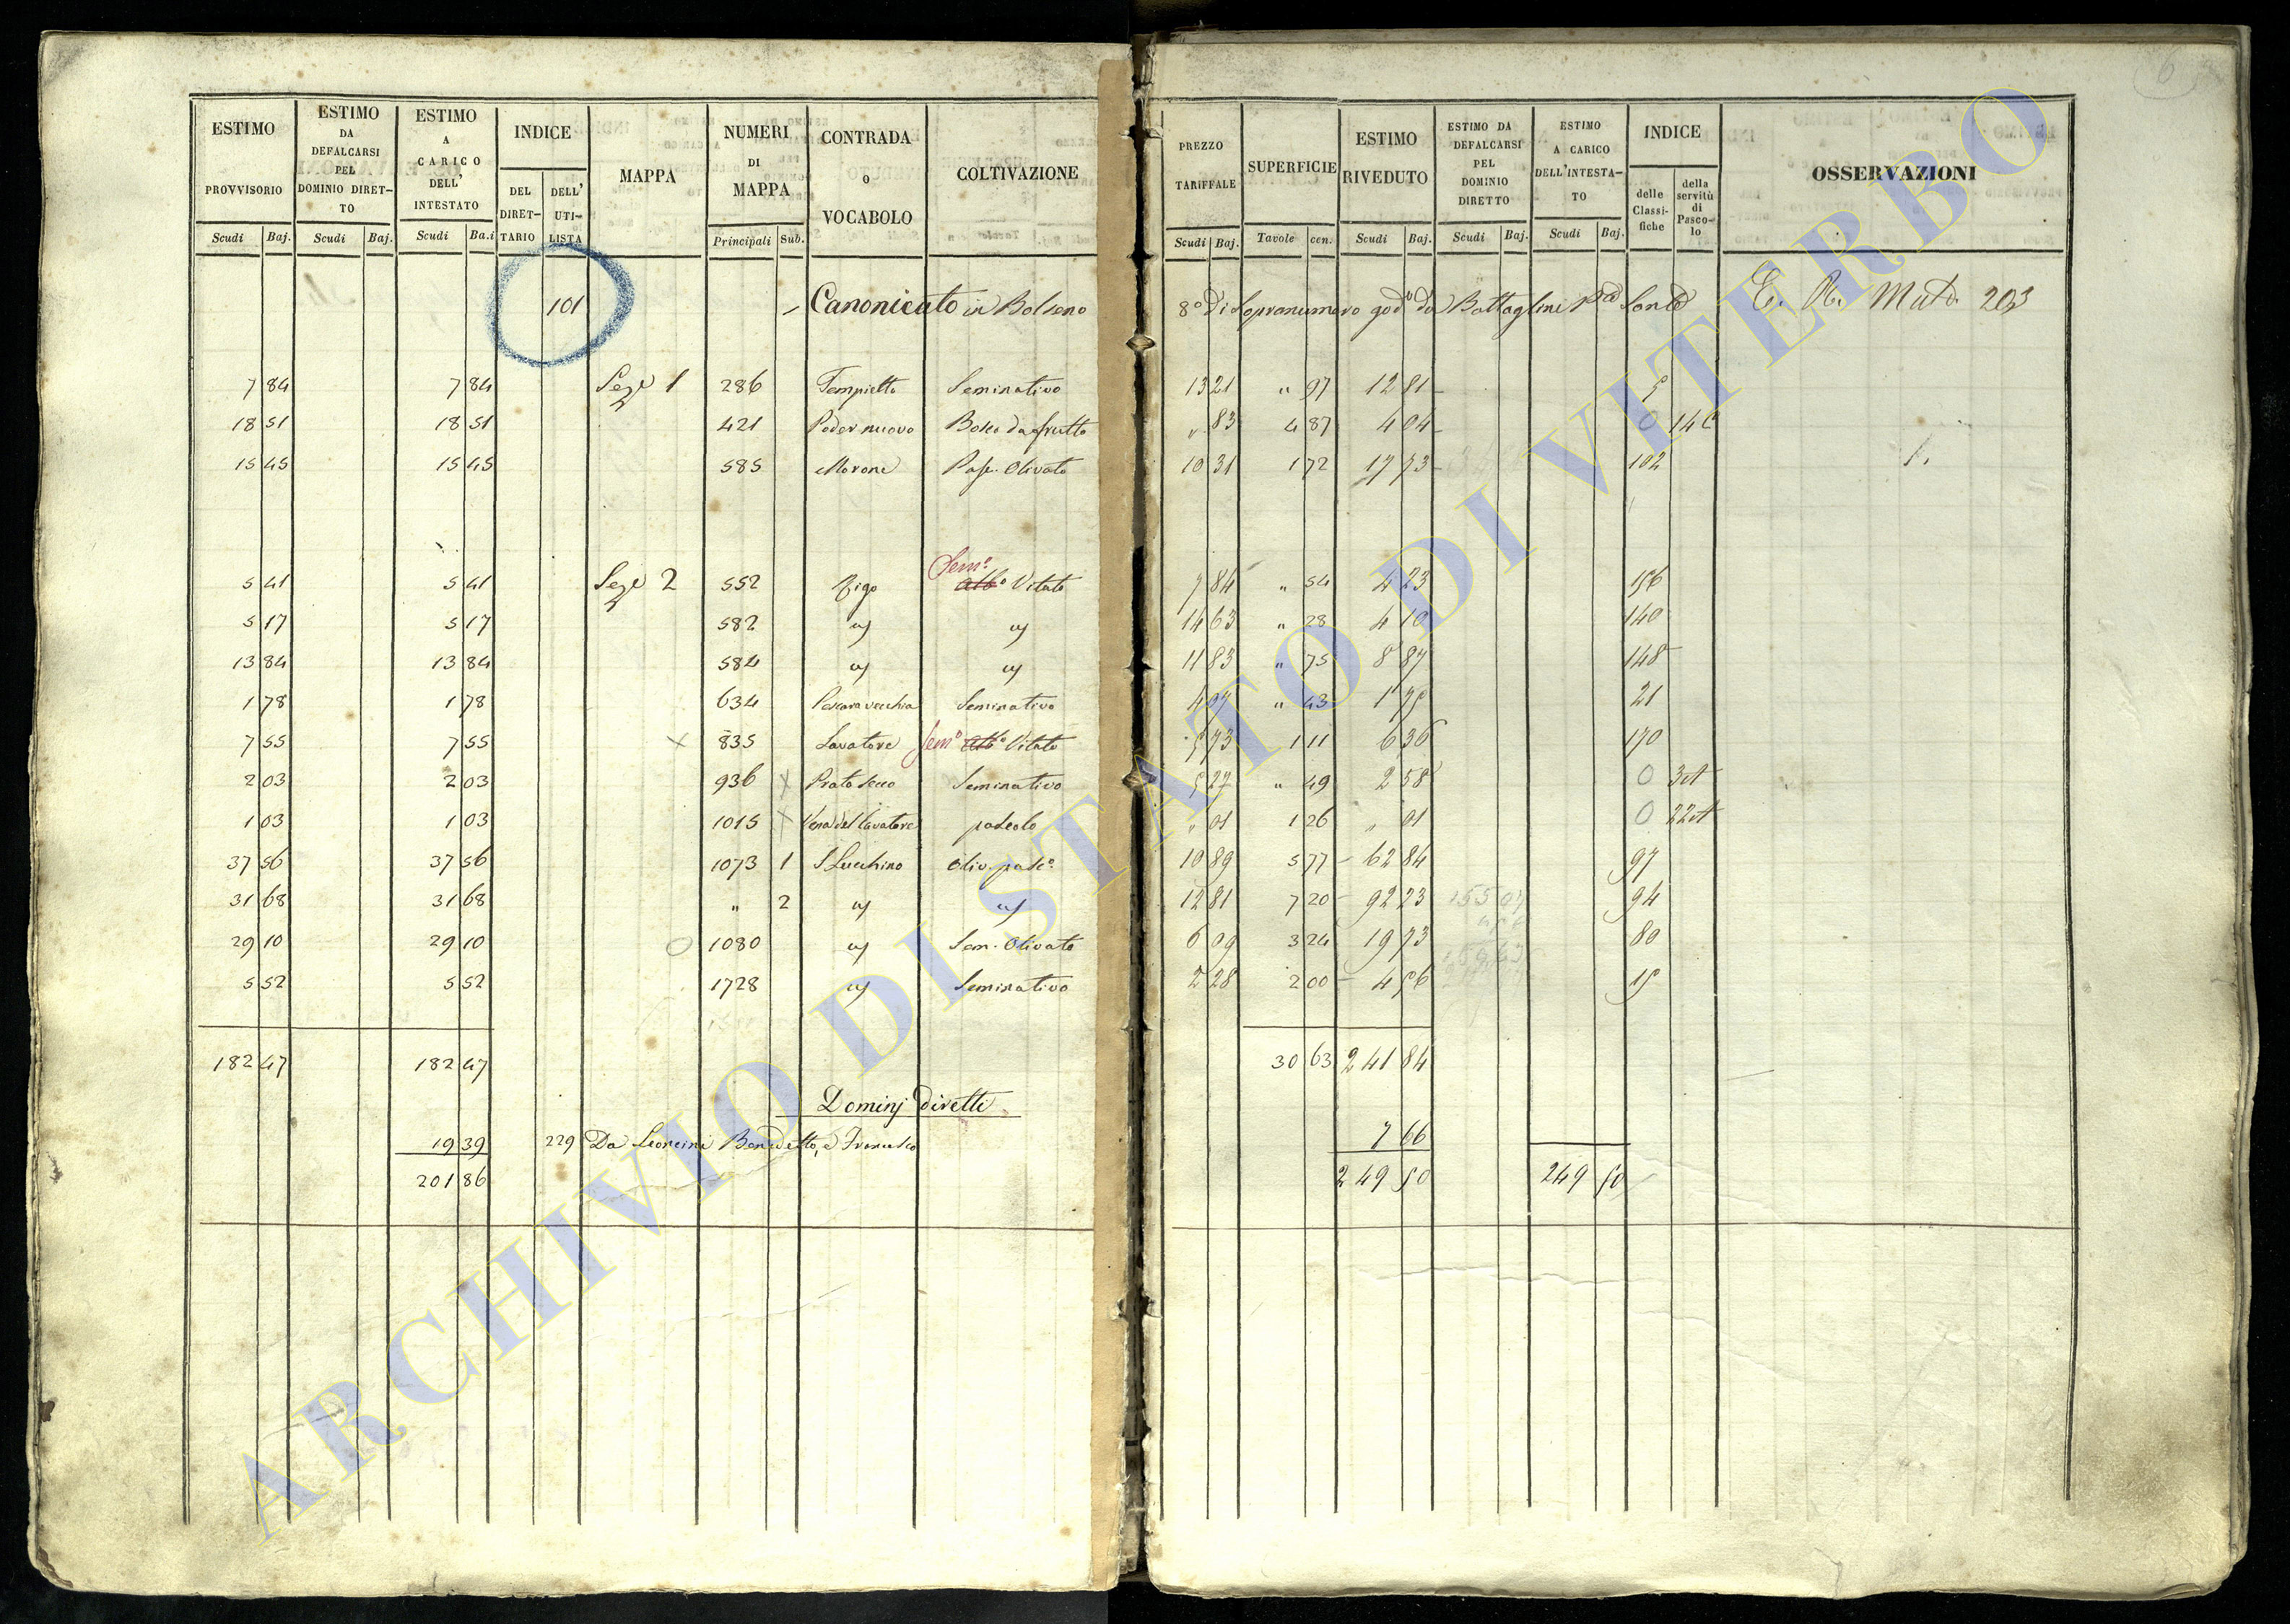 ESTIMO PROVVISORIO | ESTIMO DA DEFALCARSI PEL DOMINIO DIRET-TO | ESTIMO A CARICO DELL' INTESTATO | INDICE | MAPPA | NUMERI DI MAPPA | CONTRADA o VOCABOLO | COLTIVAZIONE | PREZZO TARIFFALE | SUPERFICIE | ESTIMO RIVEDUTO | ESTIMO DA DEFALCARSI PEL DOMINIO DIRETTO | ESTIMO A CARICO DELL'INTESTA-TO | INDICE | OSSERVAZIONI
Scudi | Baj. | Scudi | Baj. | Scudi | Ba.i | DEL DIRET-TARIO | DELL' UTI-LISTA | Principali | Sub. | Scudi | Baj. | Tavole | cen. | Scudi | Baj. | Scudi | Baj. | Scudi | Baj. | delle Classi-fiche | della servitù di Pasco-lo
101 | Canonicato in Bolseno 8° di Sopranumero god° da Battaglini | E. R. Mut. 203
7 84 | 7 84 | Seze 1 | 286 | Tempietto | Seminativo | 13 21 | " 97 | 12 81 | 5
18 51 | 18 51 | 421 | Poder nuovo | Bosco da frutto | " 83 | 4 87 | 4 04 | 0 | 14
15 45 | 15 45 | 585 | Morone | Pas. Olivato | 10 31 | 1 72 | 17 73 | 102 | 1.
Sem°
5 41 | 5 41 | Seze 2 | 552 | Rigo | Alb° Vitato | 7 84 | " 54 | 4 23 | 156
5 17 | 5 17 | 582 | 14 63 | " 28 | 4 10 | 140
13 84 | 13 84 | 584 | 11 83 | " 75 | 8 87 | 148
1 78 | 1 78 | 634 | Pescara vecchia | Seminativo | 4 07 | " 43 | 1 75 | 21
7 55 | 7 55 | × | 835 | Lavatore | Sem° Alb° Vitato | 5 73 | 1 11 | 6 36 | 170
2 03 | 2 03 | 936 | × | Prato secco | Seminativo | 5 27 | " 49 | 2 58 | 0 | 3
1 03 | 1 03 | 1015 | × | Vena del Lavatore | pascolo | " 01 | 1 26 | " 01 | 0 | 22
37 56 | 37 56 | 1073 | 1 | S Lucchino | Oliv. pasc° | 10 89 | 5 77 | 62 84 | 97
31 68 | 31 68 | " | 2 | 12 81 | 7 20 | 92 23 | 94
29 10 | 29 10 | 1080 | Sem. Olivato | 6 09 | 3 24 | 19 73 | 80
5 52 | 5 52 | 1728 | Seminativo | 2 28 | 2 00 | 4 56 | 15
182 47 | 182 47 | 30 63 | 241 84
Dominj diretti
19 39 | 229 | Da Leoncini Benedetto, e Francesco | 7 66
201 86 | 249 50 | 249 50
ARCHIVIO DI STATO DI VITERBO